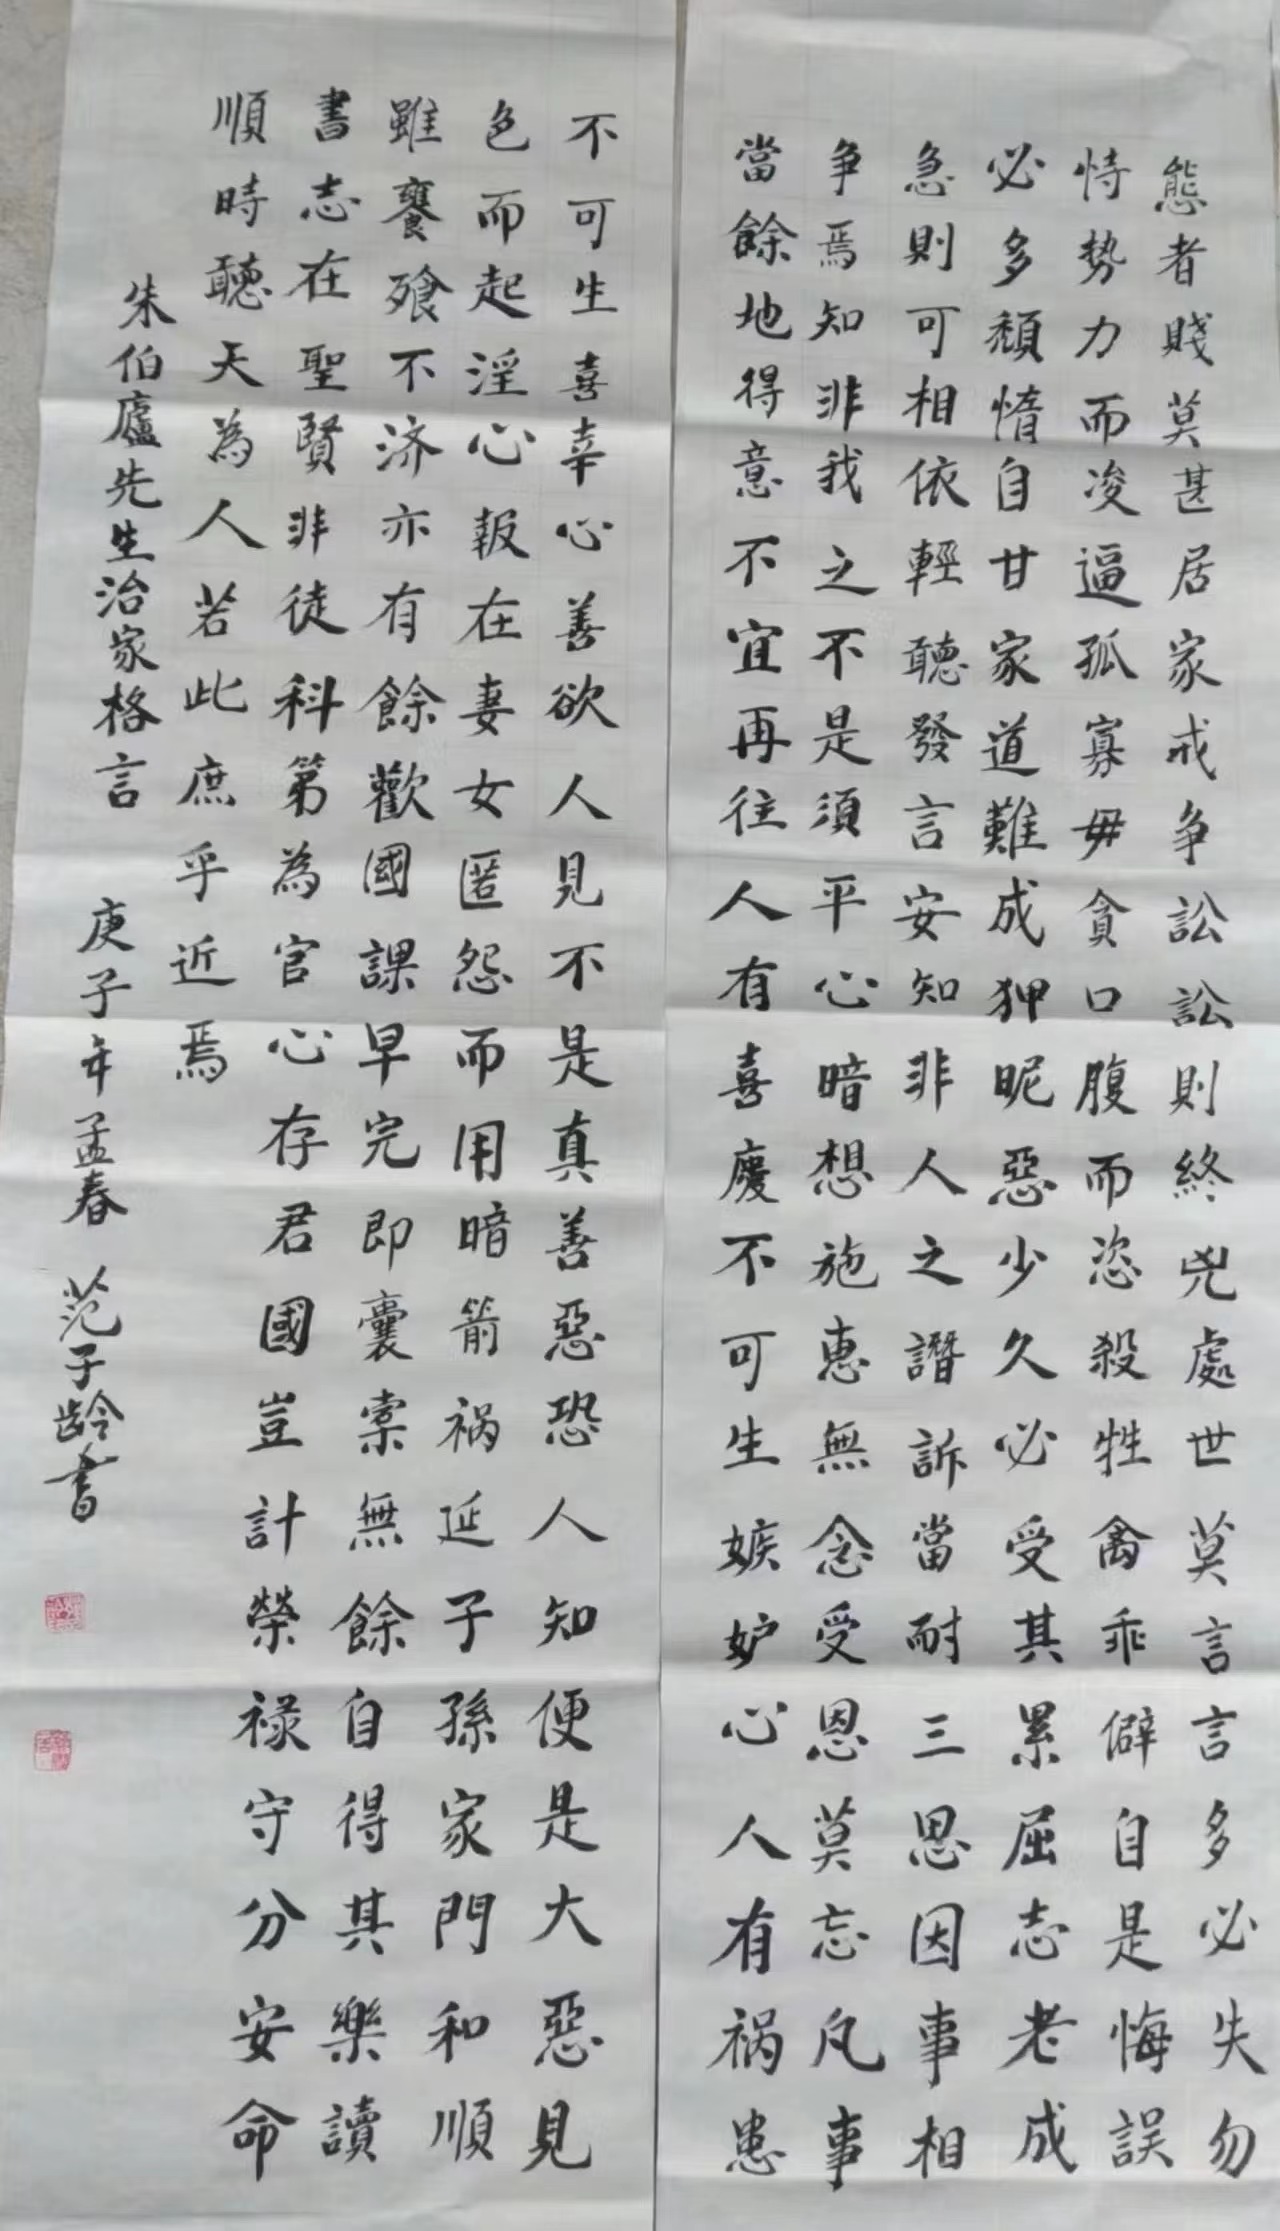 態者賤莫甚居家戒争訟訟則終兇處世莫言言多必失勿
恃势力而凌逼孤寡毋貪口腹而恣殺牲禽乖僻自是悔誤
必多頹惰自甘家道難成狎昵惡少久必受其累屈志老成
急則可相依輕聽發言安知非人之譖訴當耐三思因事相
争焉知非我之不是須平心暗想施惠無念受恩莫忘凡事
當餘地得意不宜再往人有喜慶不可生嫉妒心人有祸患
不可生喜幸心善欲人見不是真善惡恐人知便是大惡見
色而起淫心報在妻女匿怨而用暗箭祸延子孫家門和順
雖饔飱不济亦有餘歡國課早完即囊橐無餘自得其樂讀
書志在聖賢非徒科第為官心存君國豈計榮禄守分安命
順時聽天為人若此庶乎近焉
朱伯廬先生治家格言 庚子年孟春 范子龄書